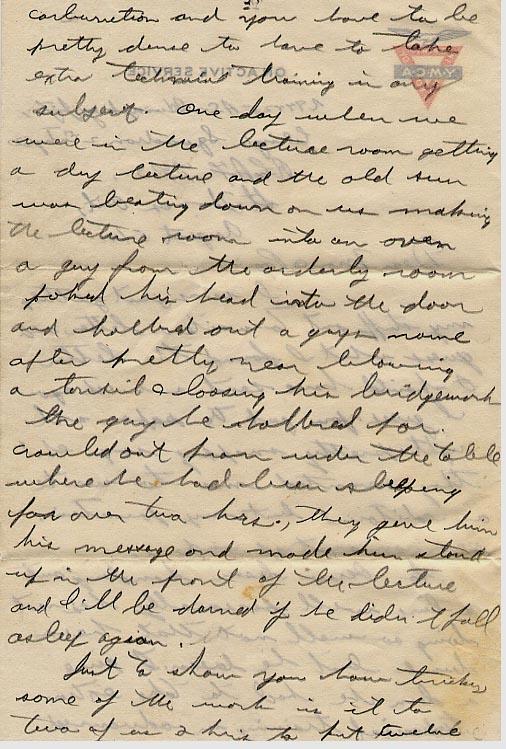 carburetion and you have to be
pretty dense to have to take
extra technical training in any
subject. One day when we
were in the lecture room getting
a dry lecture and the old sun
was beating down on us making
the lecture room into an oven
a guy from the orderly room
poked his head into the door
and hollred out a guys name
after pretty near blowing
a tonsil & loosing his bridgework
the guy he hollred for.
crawled out from under the table
where he had been sleeping
for over two hrs., they gave him
his message and made him stand
up in the front of the lecture
and I'll be darned if he didn't fall
asleep again.
Just to show you how
some of the work is it to
two of us 2 hrs to put twelve
Y.M.C.A
ON ACTIVE SERVICE